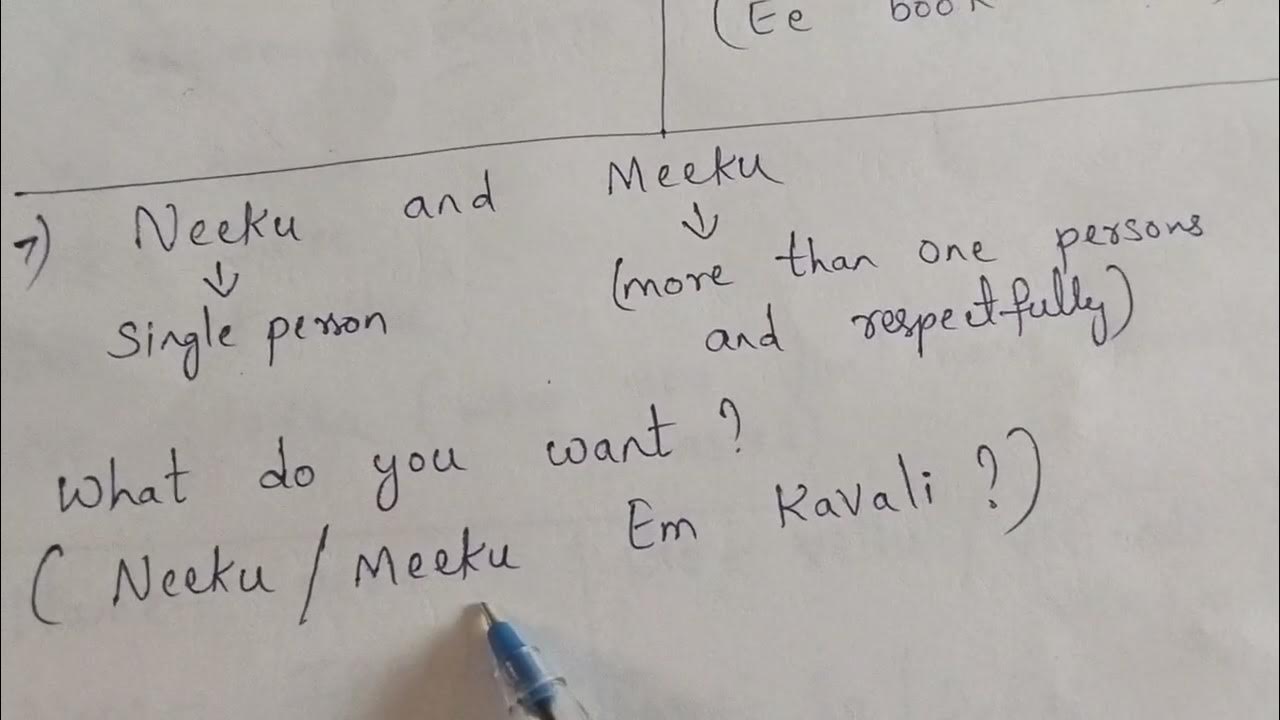 (Ee book
7) Neeku and Meeku
↓ ↓
Single person (more than one persons
and respectfully)
What do you want ?
( Neeku / Meeku Em Kavali ?)